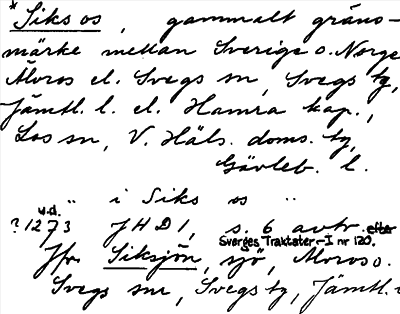 * Siks os, gammalt gräns-
märke mellan Sverige o. Norge
Älvros el. Svegs sn, Svegs tg,
Jämtl. l. el. Hamra kap.,
Los sn, V. Häls. doms. tg,
Gävleb. l.
" i Siks os "
u.d.
? 1273 JHD 1, s. 6 avtr. efter
Sverges Traktater I nr 120.
Jfr Siksjön, sjö, Älvros o.
Svegs snr, Svegs tg, Jämtl.